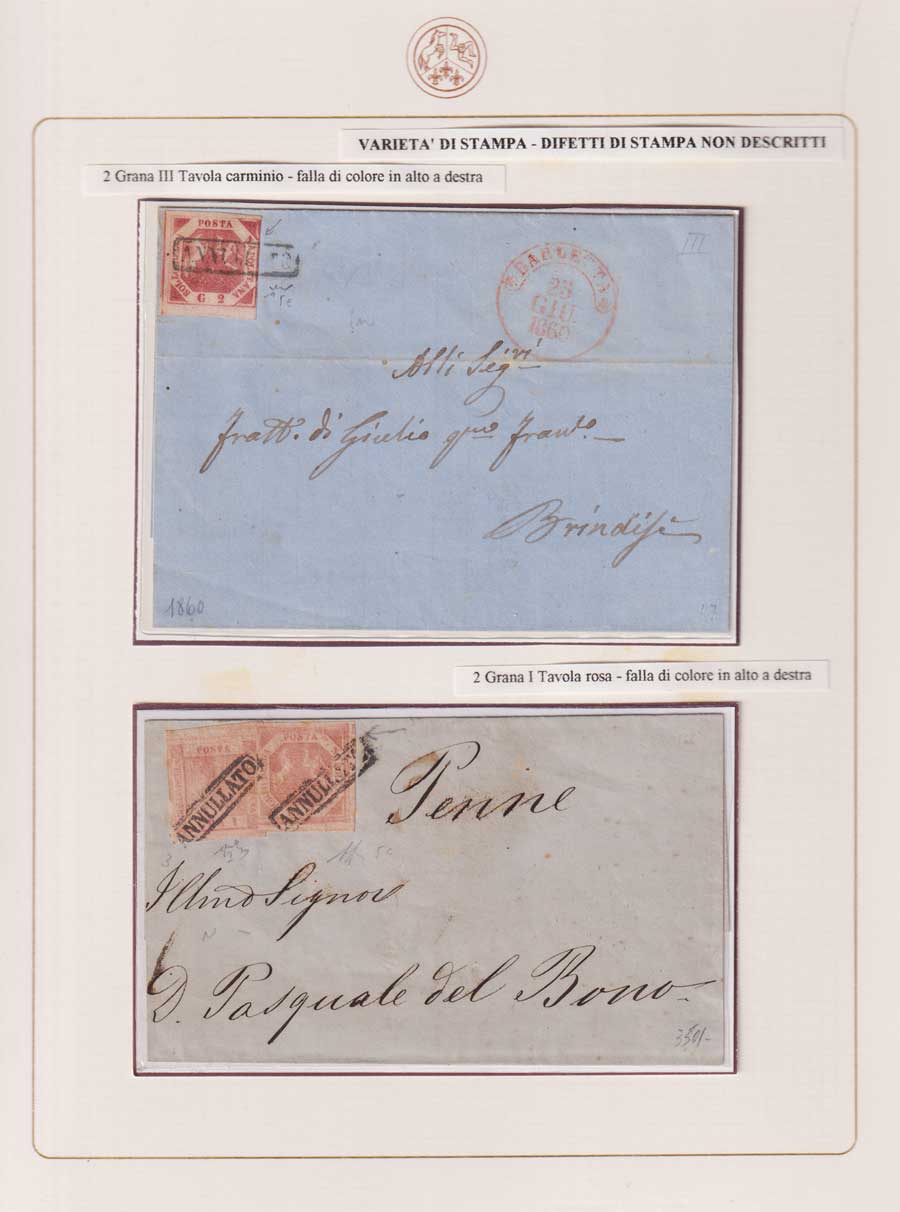 VARIETA' DI STAMPA - DIFETTI DI STAMPA NON DESCRITTI
2 Grana III Tavola carminio - falla di colore in alto a destra
POSTA
G 2
BARLETTA
23
GIU.
1860
III
Alli Sig.vi
Fratt. di Giulio
Brindisi
1860
2 Grana I Tavola rosa - falla di colore in alto a destra
POSTA
POSTA
ANNULLATO
ANNULLATO
Penne
Illmo Signor
D. Pasquale del Bono